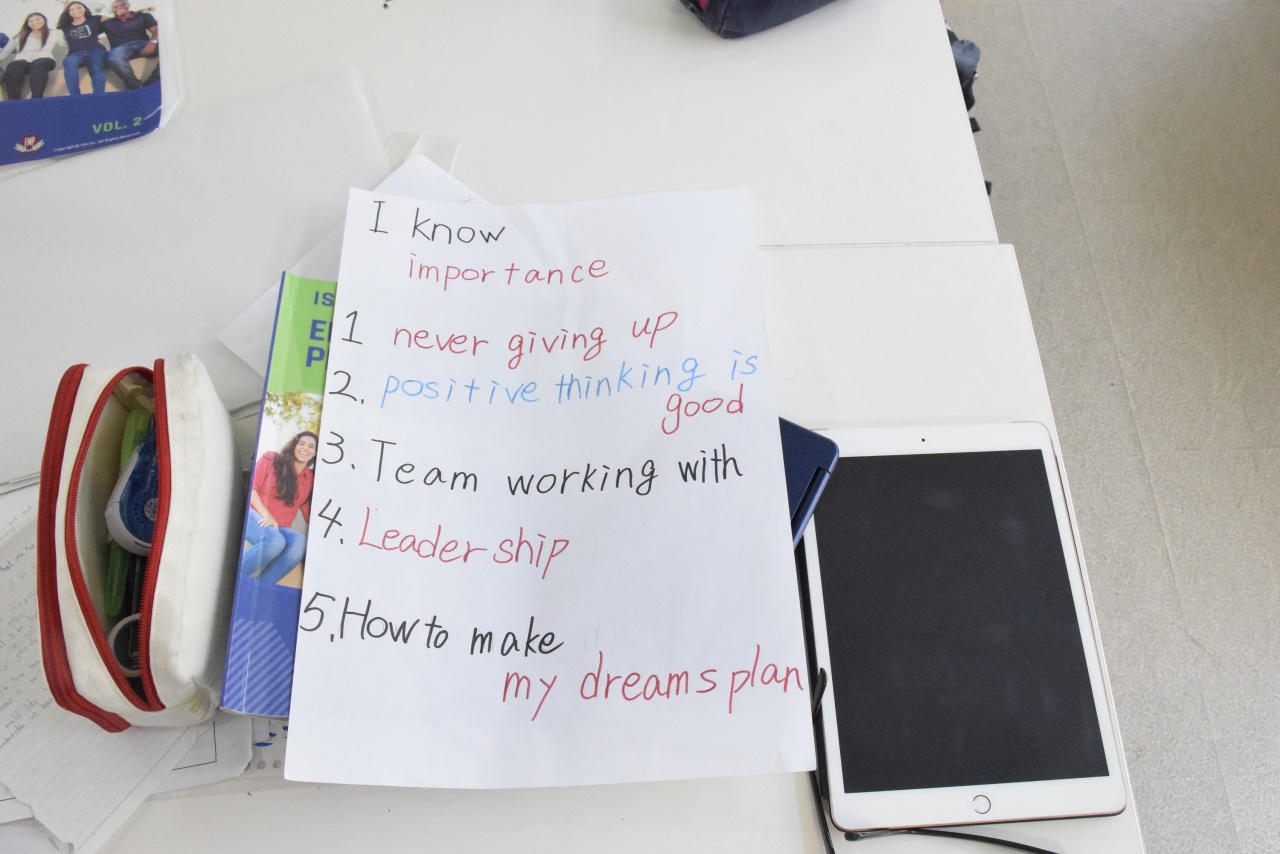 VOL. 2
I know
importance
1 never giving up
2. positive thinking is
good
3. Team working with
4. Leadership
5. How to make
my dreams plan
IS
E
P